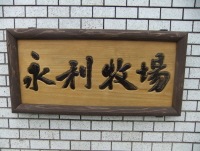 永利牧場